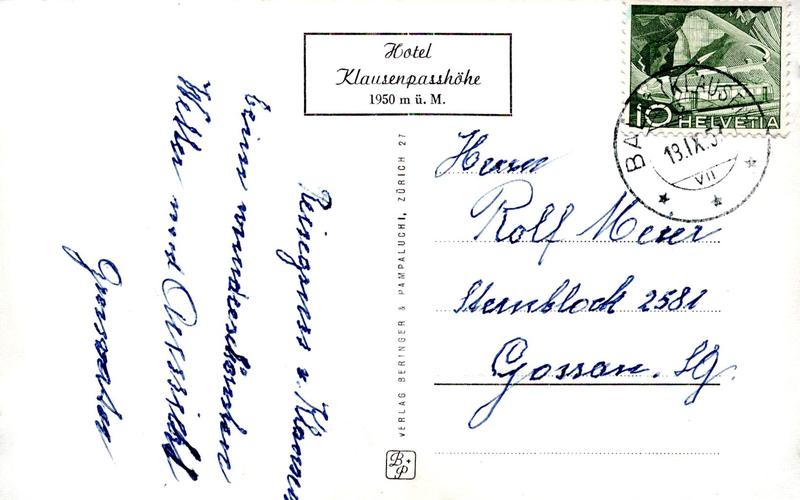 Hotel
Klausenpasshöhe
1950 m ü. M.
10 HELVETIA
KLAUSEN
13.IX.5
VII
Herrn
Rolf Meier
Sternblock 2581
Gossau. SG.
VERLAG BERINGER & PAMPALUCHI, ZÜRICH 27
B+P
Reisegruss v. Klausen
beim wunderschönen
Wetter und Aussicht
Grossvater